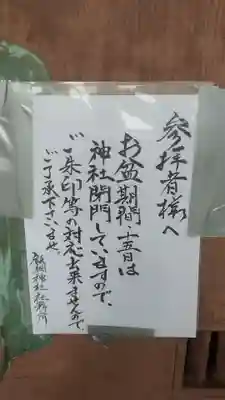 参拝者様へ
お盆期間十五日は
神社閉門していますので、
ご朱印等の対応出来ませんので
ご了承下さいませ
神社社務所